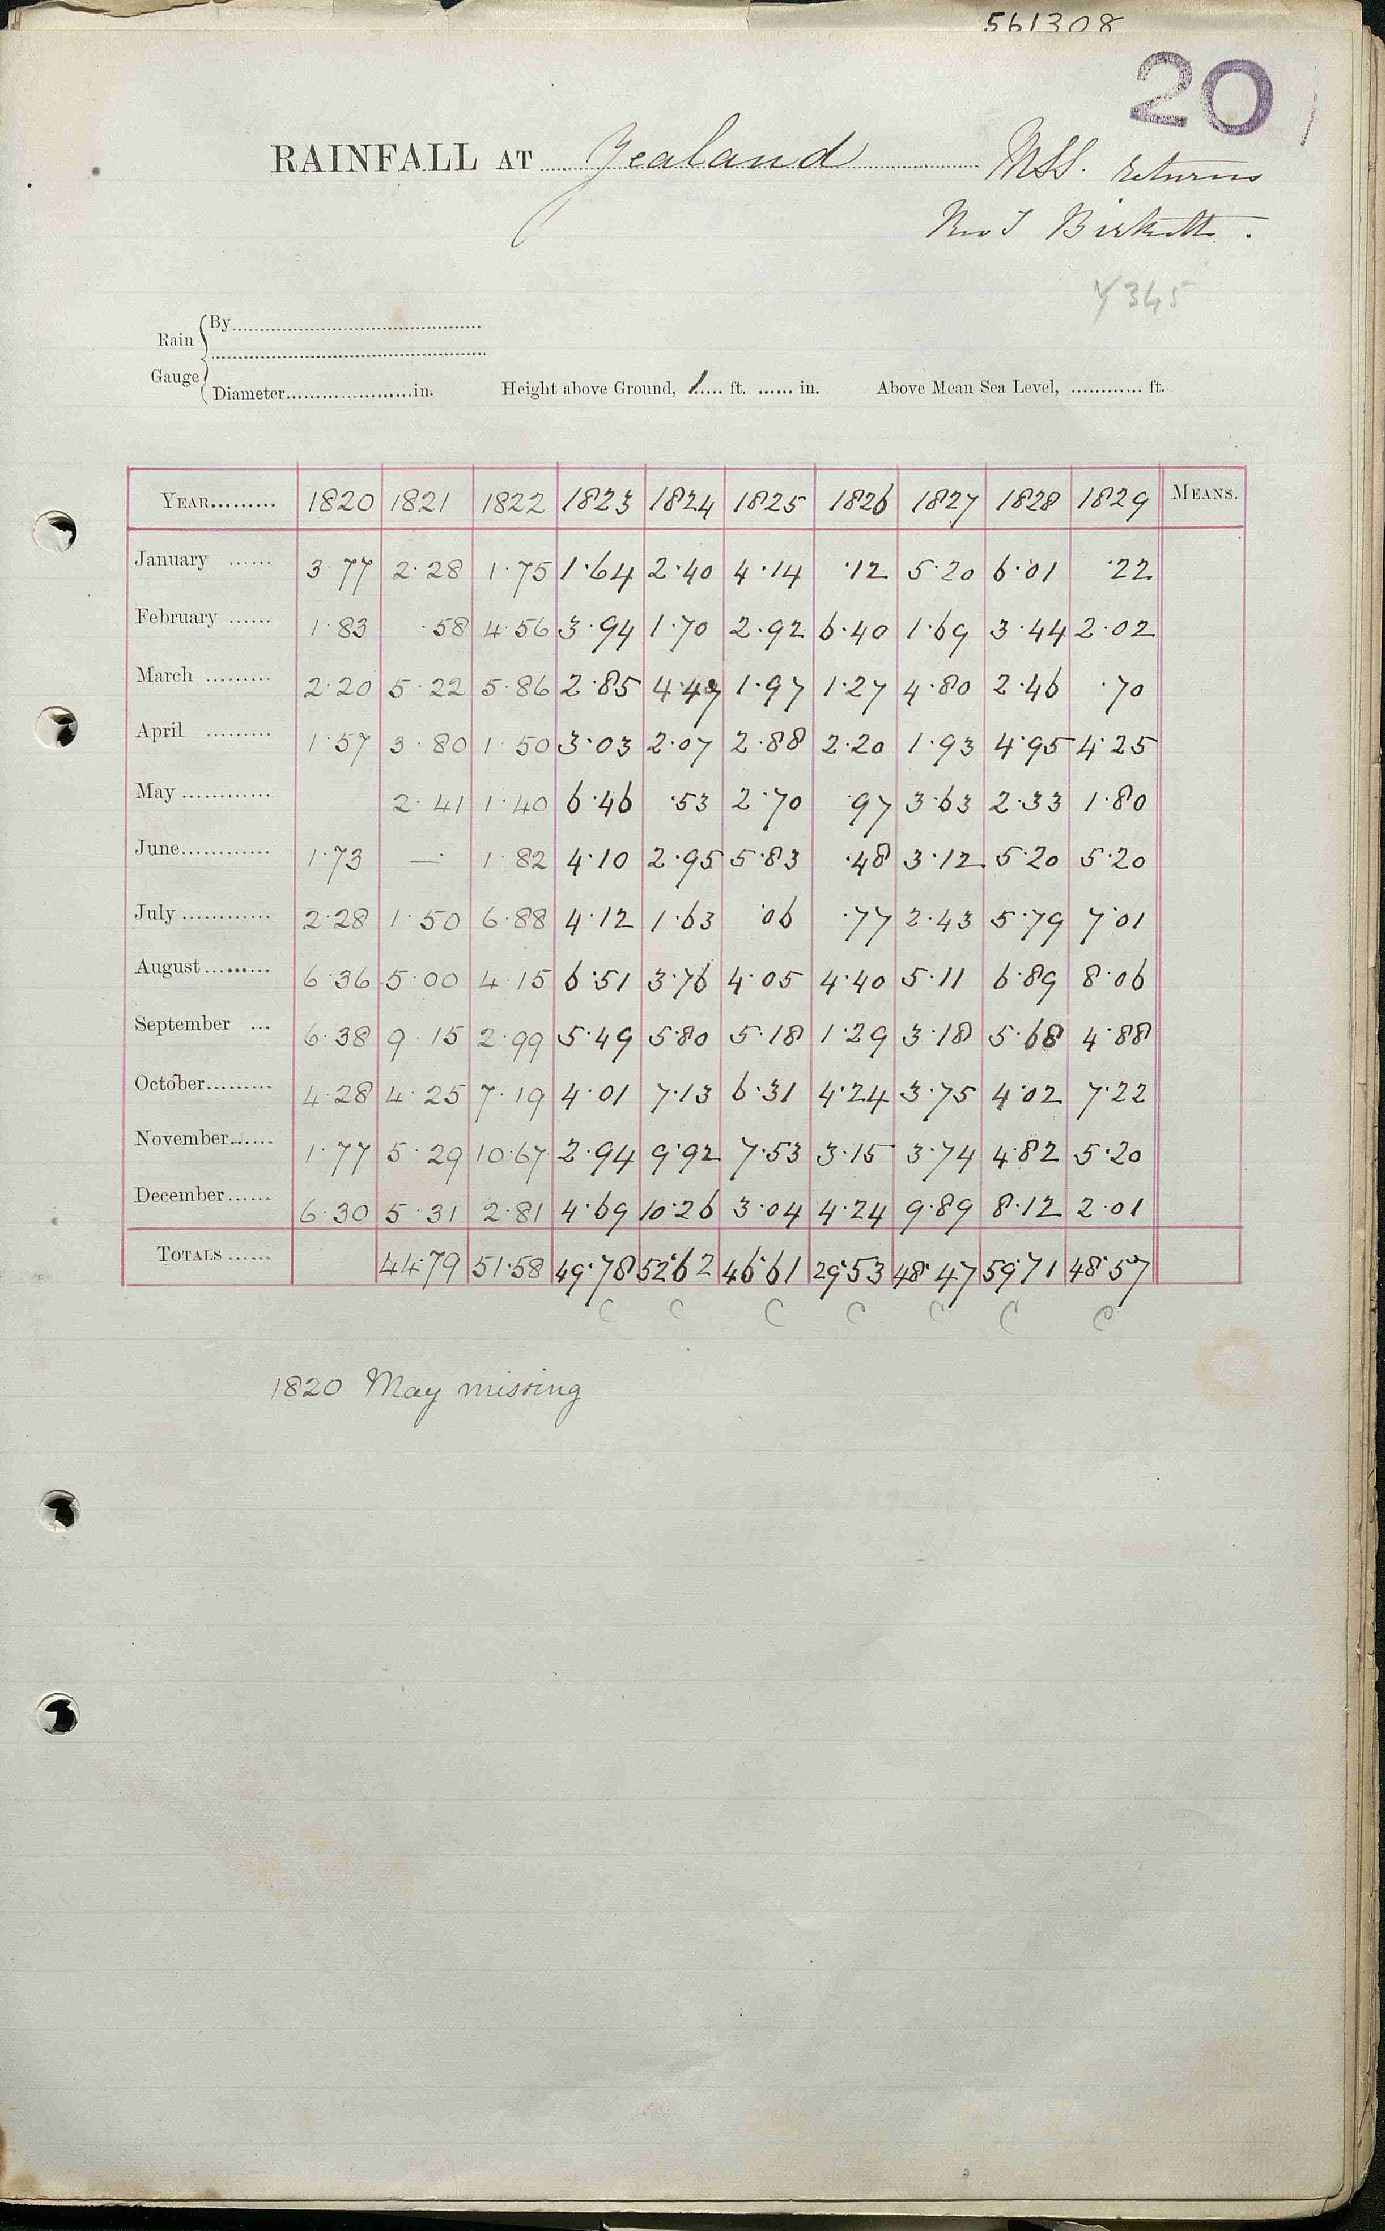 561308
20
RAINFALL AT Yealand MSS. returns
Rev T Birkett.
Y345
Rain Gauge { By
Diameter in. Height above Ground, 1 ft. in. Above Mean Sea Level, ft.
YEAR 1820 1821 1822 1823 1824 1825 1826 1827 1828 1829 MEANS.
January 3.77 2.28 1.75 1.64 2.40 4.14 .12 5.20 6.01 .22
February 1.83 .58 4.56 3.94 1.70 2.92 6.40 1.69 3.44 2.02
March 2.20 5.22 5.86 2.85 4.47 1.97 1.27 4.80 2.46 .70
April 1.57 3.80 1.50 3.03 2.07 2.88 2.20 1.93 4.95 4.25
May 2.41 1.40 6.46 .53 2.70 .97 3.63 2.33 1.80
June 1.73 — 1.82 4.10 2.95 5.83 .48 3.12 5.20 5.20
July 2.28 1.50 6.88 4.12 1.63 .06 .77 2.43 5.79 7.01
August 6.36 5.00 4.15 6.51 3.76 4.05 4.40 5.11 6.89 8.06
September 6.38 9.15 2.99 5.49 5.80 5.18 1.29 3.18 5.68 4.88
October 4.28 4.25 7.19 4.01 7.13 6.31 4.24 3.75 4.02 7.22
November 1.77 5.29 10.67 2.94 9.92 7.53 3.15 3.74 4.82 5.20
December 6.30 5.31 2.81 4.69 10.26 3.04 4.24 9.89 8.12 2.01
TOTALS 44.79 51.58 49.78 52.62 46.61 29.53 48.47 59.71 48.57
C C C C C C C
1820 May missing